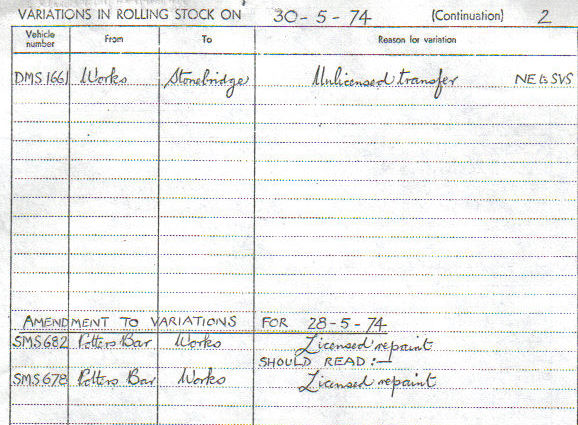 VARIATIONS IN ROLLING STOCK ON 30-5-74 (Continuation) 2
Vehicle number From To Reason for variation
DMS1661 Works Stonebridge Unlicensed transfer NE to SVS
AMENDMENT TO VARIATIONS FOR 28-5-74
SMS682 Potters Bar Works Licensed repaint
SHOULD READ:-
SMS678 Potters Bar Works Licensed repaint